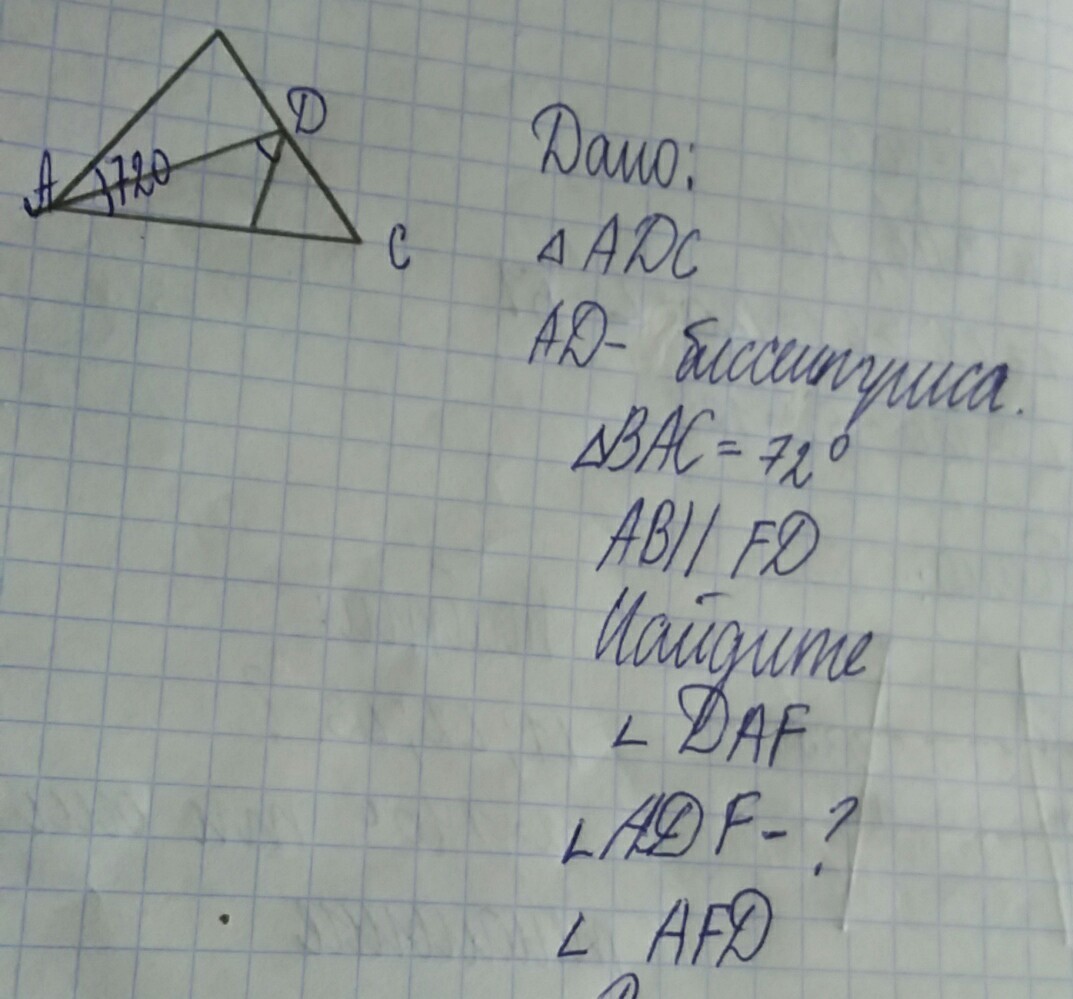 A
720
D
C
Дано:
△ ADC
AD- биссектриса.
△BAC = 72°
AB || FD
Найдите
∠ DAF
∠ADF - ?
∠ AFD